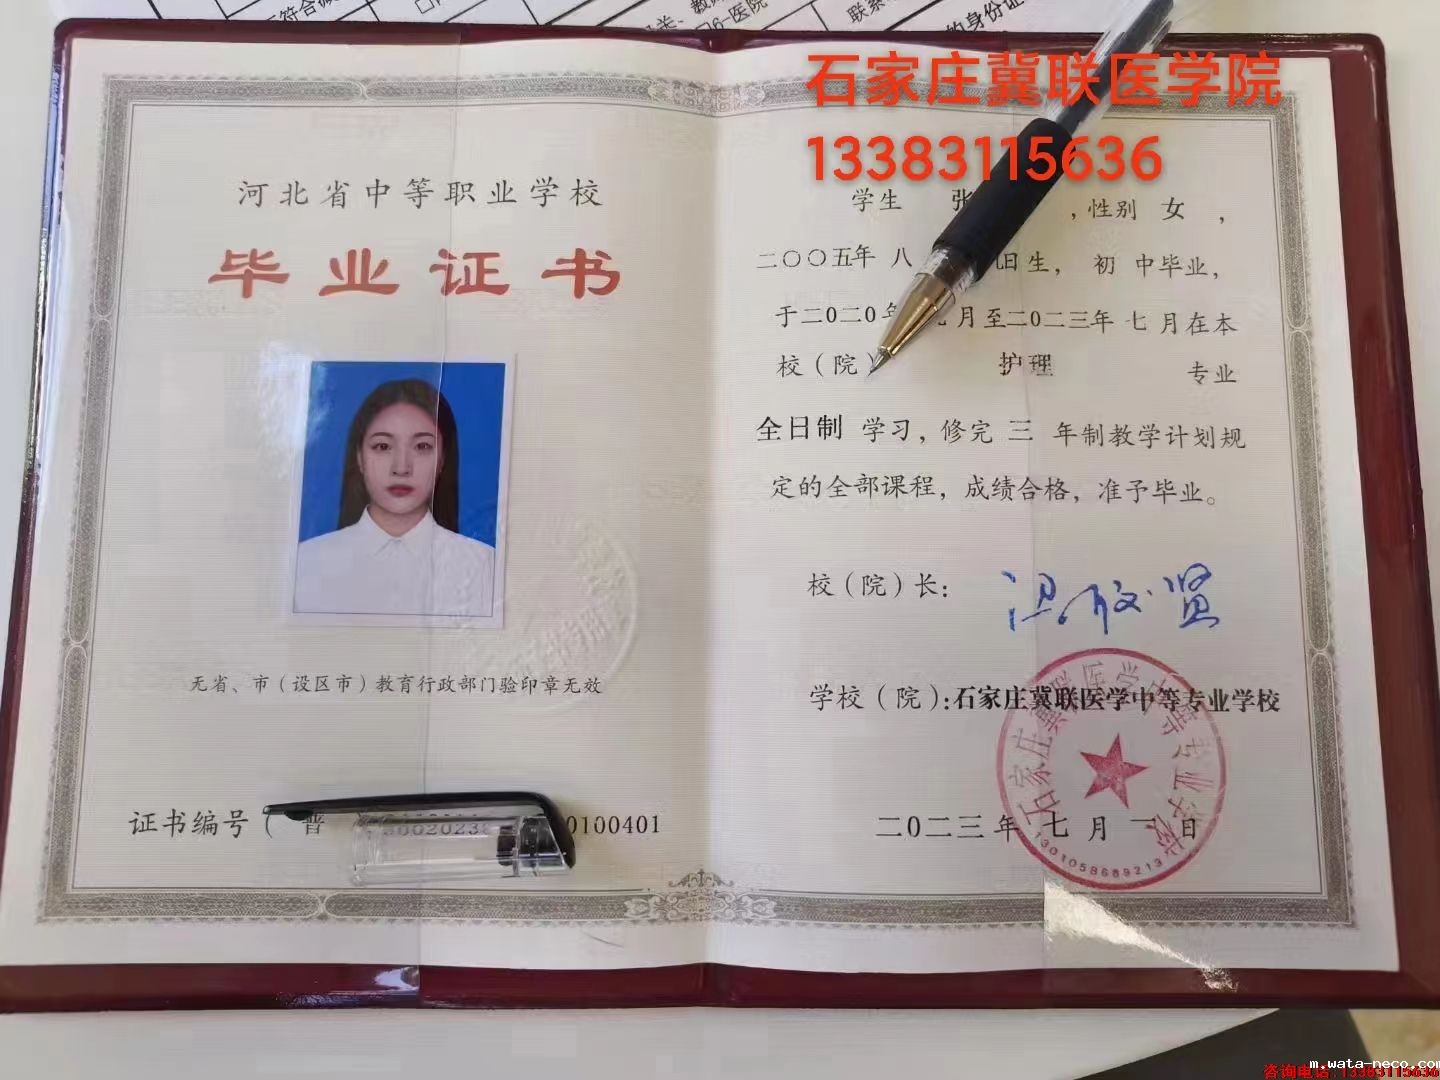 石家庄冀联医学院
13383115636
河北省中等职业学校
毕业证书
无省、市（设区市）教育行政部门验印章无效
证书编号（ 普 0100401
学生 张 ，性别 女 ，
二〇〇五年 八 日生， 初 中毕业，
于二0二0年 月至二0二三年 七 月在本
校（院） 护理 专业
全日制 学习，修完 三 年制教学计划规
定的全部课程，成绩合格，准予毕业。
校（院）长：
学校（院）：石家庄冀联医学中等专业学校
二0二三年 七 月 一 日
石家庄冀联医学中等专业学校
1301058689213
m.wata-neco.com
咨询电话:13383115636